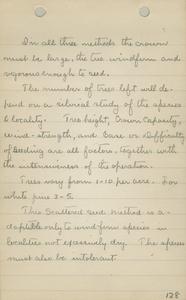 In all three methods the crown
must be large, the tree windfirm and
vigorous enough to seed.
The number of trees left will de-
pend on a silvical study of the species
& locality. Tree height, Crown Capacity,
wind-strength, and Ease or Difficulty
of Seeding are all factors, together with
the intensiveness of the operation.
Trees vary from 1-10 per acre. For
white pine 3-5.
This Scattered seed method is a-
daptable only to windfirm species in
localities not excessively dry. The species
must also be intolerant
128